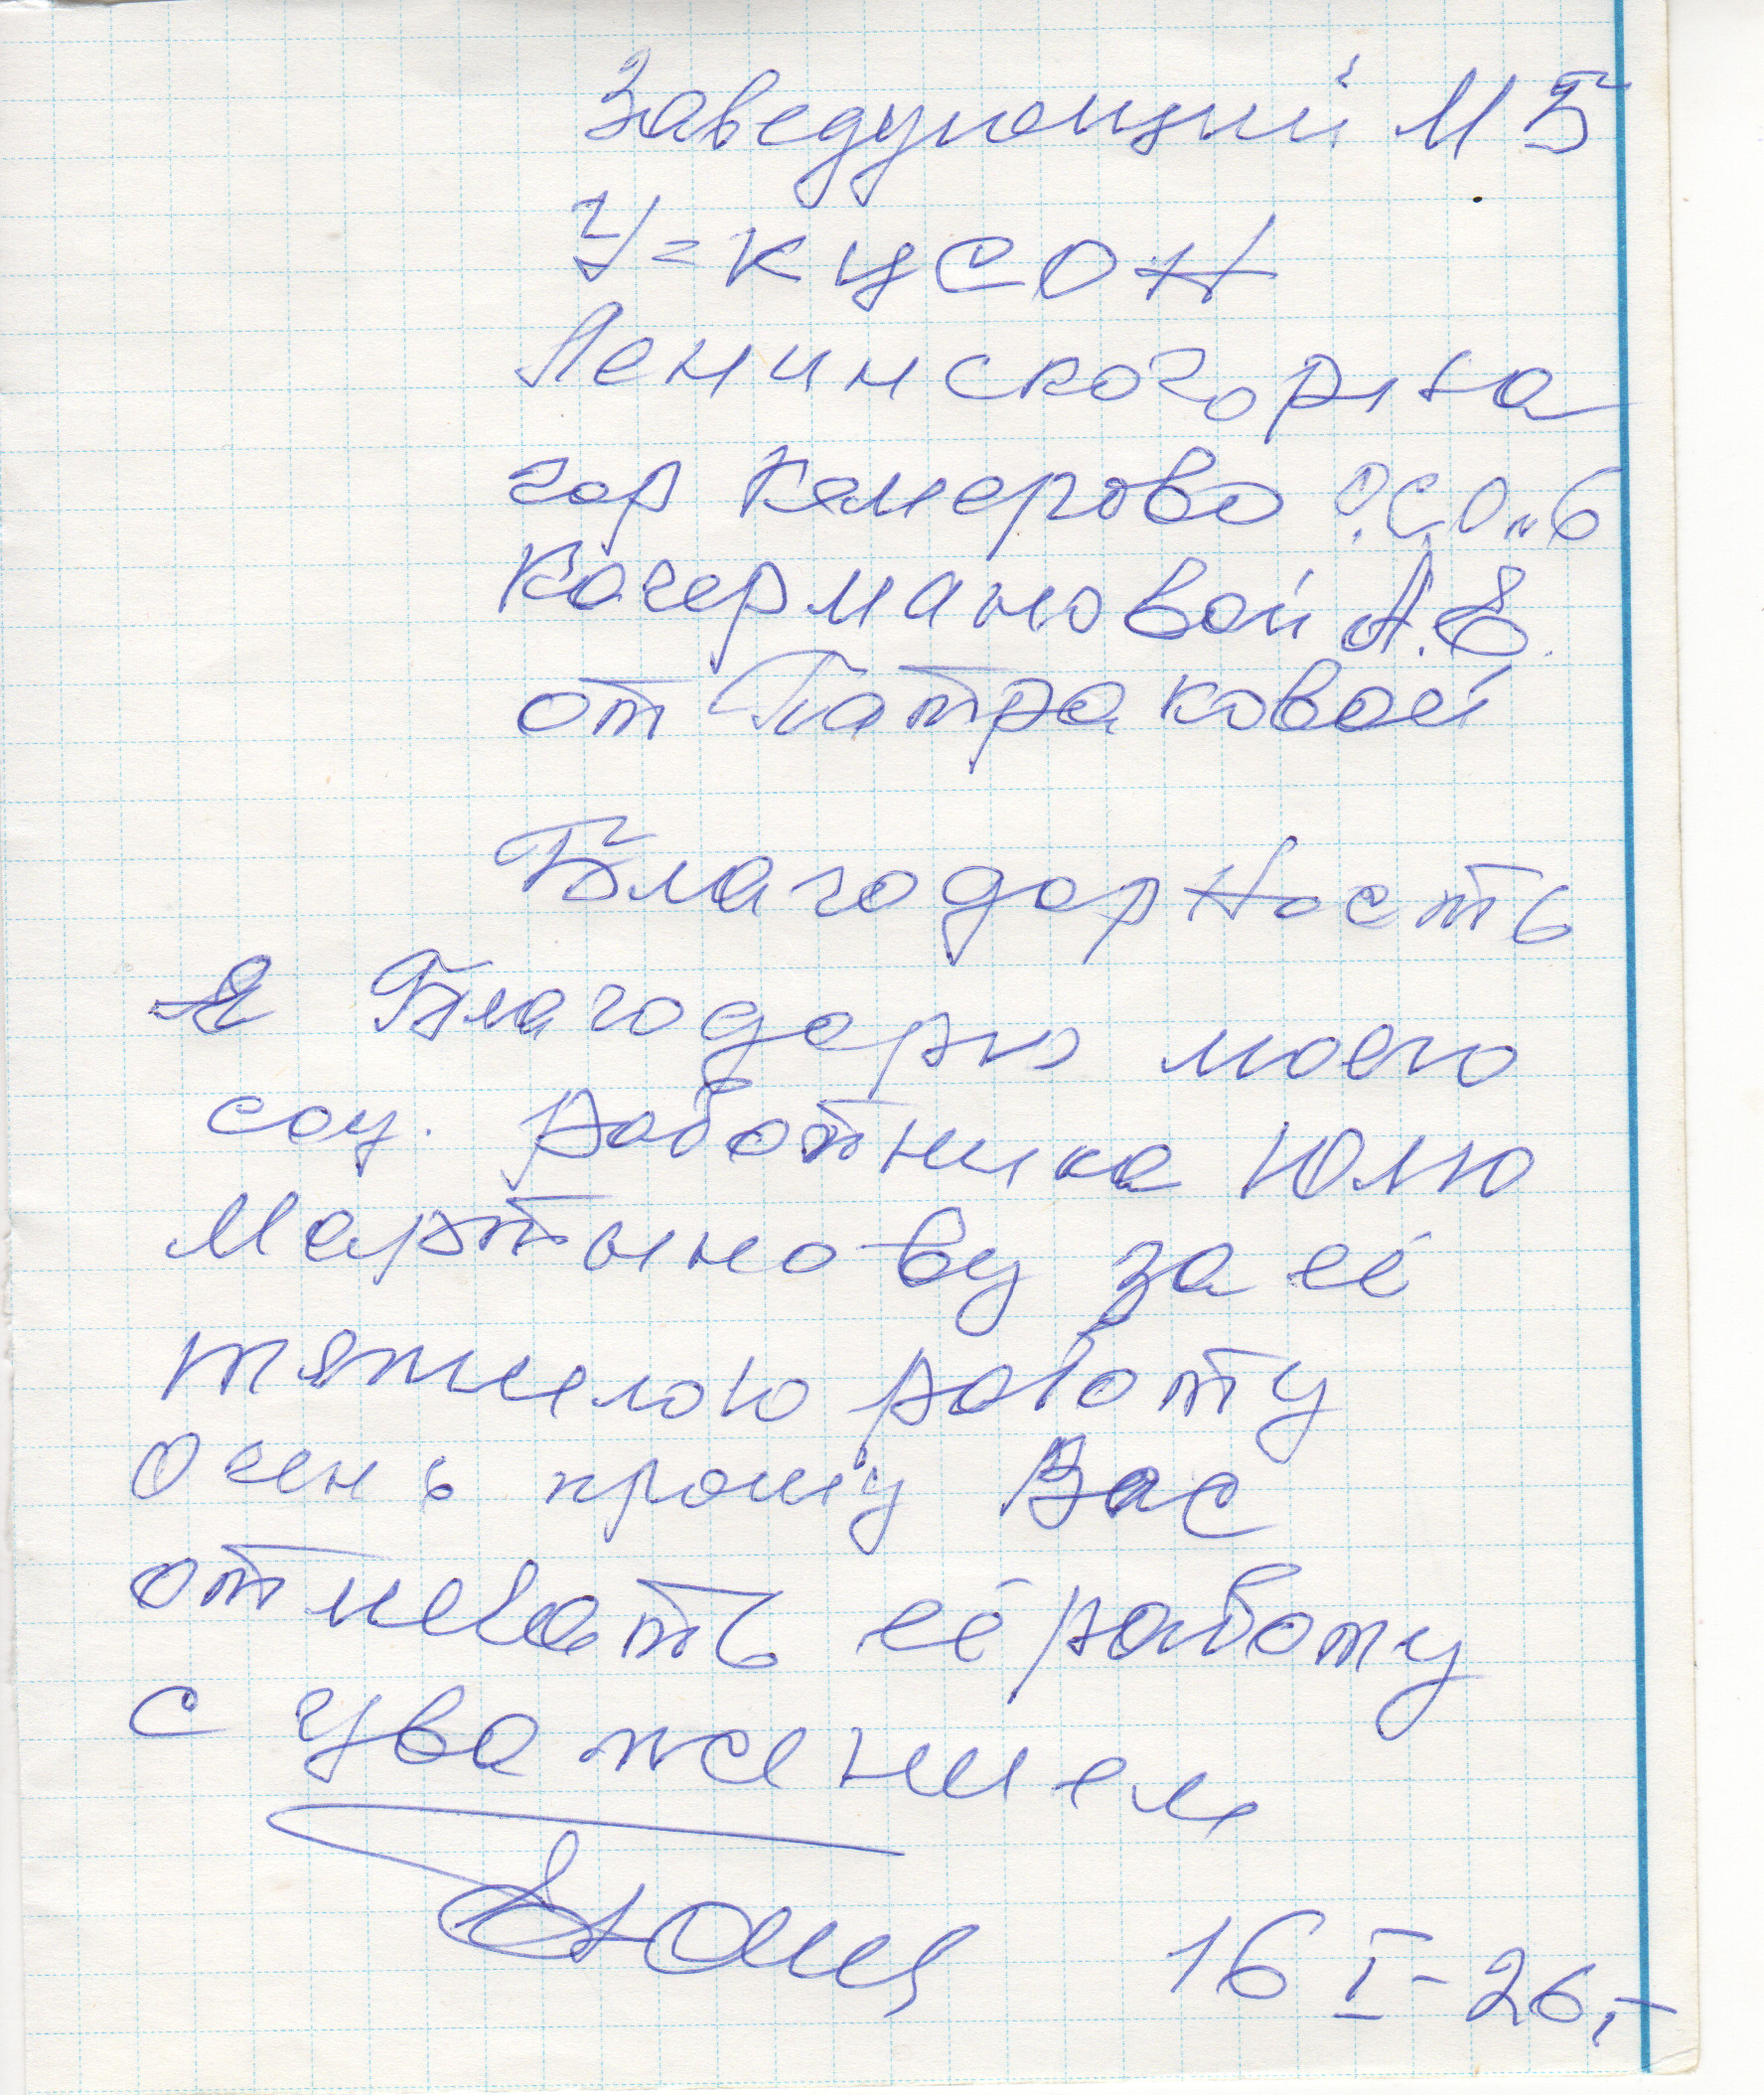 Заведующий МБ
У=КЦСОН
Ленинского р-на
гор Кемерово О.С.О. №6
Качермановой А.Е.
от Патраковой
Благодарность
Я Благодарю моего
соц. работника Юлю
Мартынову за её
тяжелою работу
очень прошу Вас
отмечать её работу
с уважением
16 I-26,-